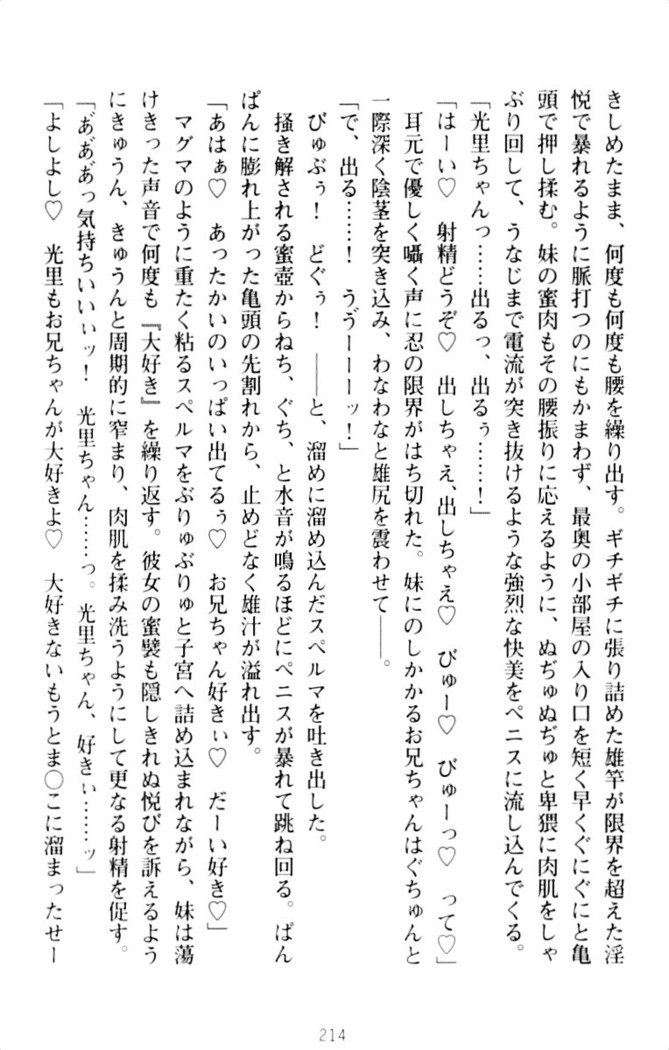 きしめたまま、何度も何度も腰を繰り出す。ギチギチに張り詰めた雄竿が限界を超えた淫
悦で暴れるように脈打つのにもかまわず、最奥の小部屋の入り口を短く早くぐにぐにと亀
頭で押し揉む。妹の蜜肉もその腰振りに応えるように、ぬぢゅぬぢゅと卑猥に肉肌をしゃ
ぶり回して、うなじまで電流が突き抜けるような強烈な快美をペニスに流し込んでくる。
「光里ちゃんっ……出るっ、出るぅ……！」
「はーい♡　射精どうぞ♡　出しちゃえ、出しちゃえ♡　びゅー♡　びゅーっ♡　って♡」
耳元で優しく囁く声に忍の限界がはち切れた。妹にのしかかるお兄ちゃんはぐちゅんと
一際深く陰茎を突き込み、わなわなと雄尻を震わせて――。
「で、出る……！　うゔーーーッ！」
びゅぶぅ！　どぐぅ！　――と、溜めに溜め込んだスペルマを吐き出した。
掻き解される蜜壺からねち、ぐち、と水音が鳴るほどにペニスが暴れて跳ね回る。ぱん
ぱんに膨れ上がった亀頭の先割れから、止めどなく雄汁が溢れ出す。
「あはぁ♡　あったかいのいっぱい出てるぅ♡　お兄ちゃん好きぃ♡　だーい好き♡」
マグマのように重たく粘るスペルマをぶりゅぶりゅと子宮へ詰め込まれながら、妹は蕩
けきった声音で何度も『大好き』を繰り返す。彼女の蜜襞も隠しきれぬ悦びを訴えるよう
にきゅうん、きゅうんと周期的に窄まり、肉肌を揉み洗うようにして更なる射精を促す。
「あ゙あ゙あ゙っ気持ちいいぃッ！　光里ちゃん……っ。光里ちゃん、好きぃ……ッ」
「よしよし♡　光里もお兄ちゃんが大好きよ♡　大好きないもうとま〇こに溜まったせー
214